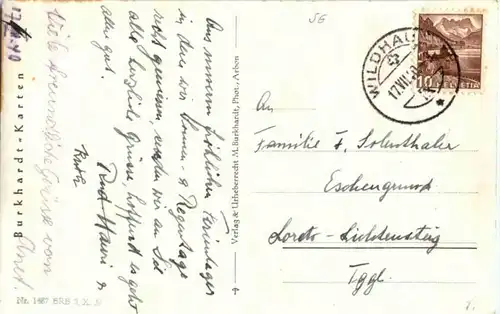 17.VII.40
Viele freundliche Grüsse von
Burkhardt-Karten
Aus unsern fröhlichen Ferientagen
in denen wir Sonnen- & Regentage
recht geniessen, senden wir an Sie
alle herzliche Grüsse, hoffend es geht
allen gut.
Ruth
Nr. 1487 BRB 3. X. 39
Verlag & Urheberrecht M. Burkhardt, Phot., Arbon
SG
WILDHAUS
17.VII.40
10 HELVETIA
An
Familie J. Solenthaler
Eschengrund
Loreto-Lichtensteig
Tggl.